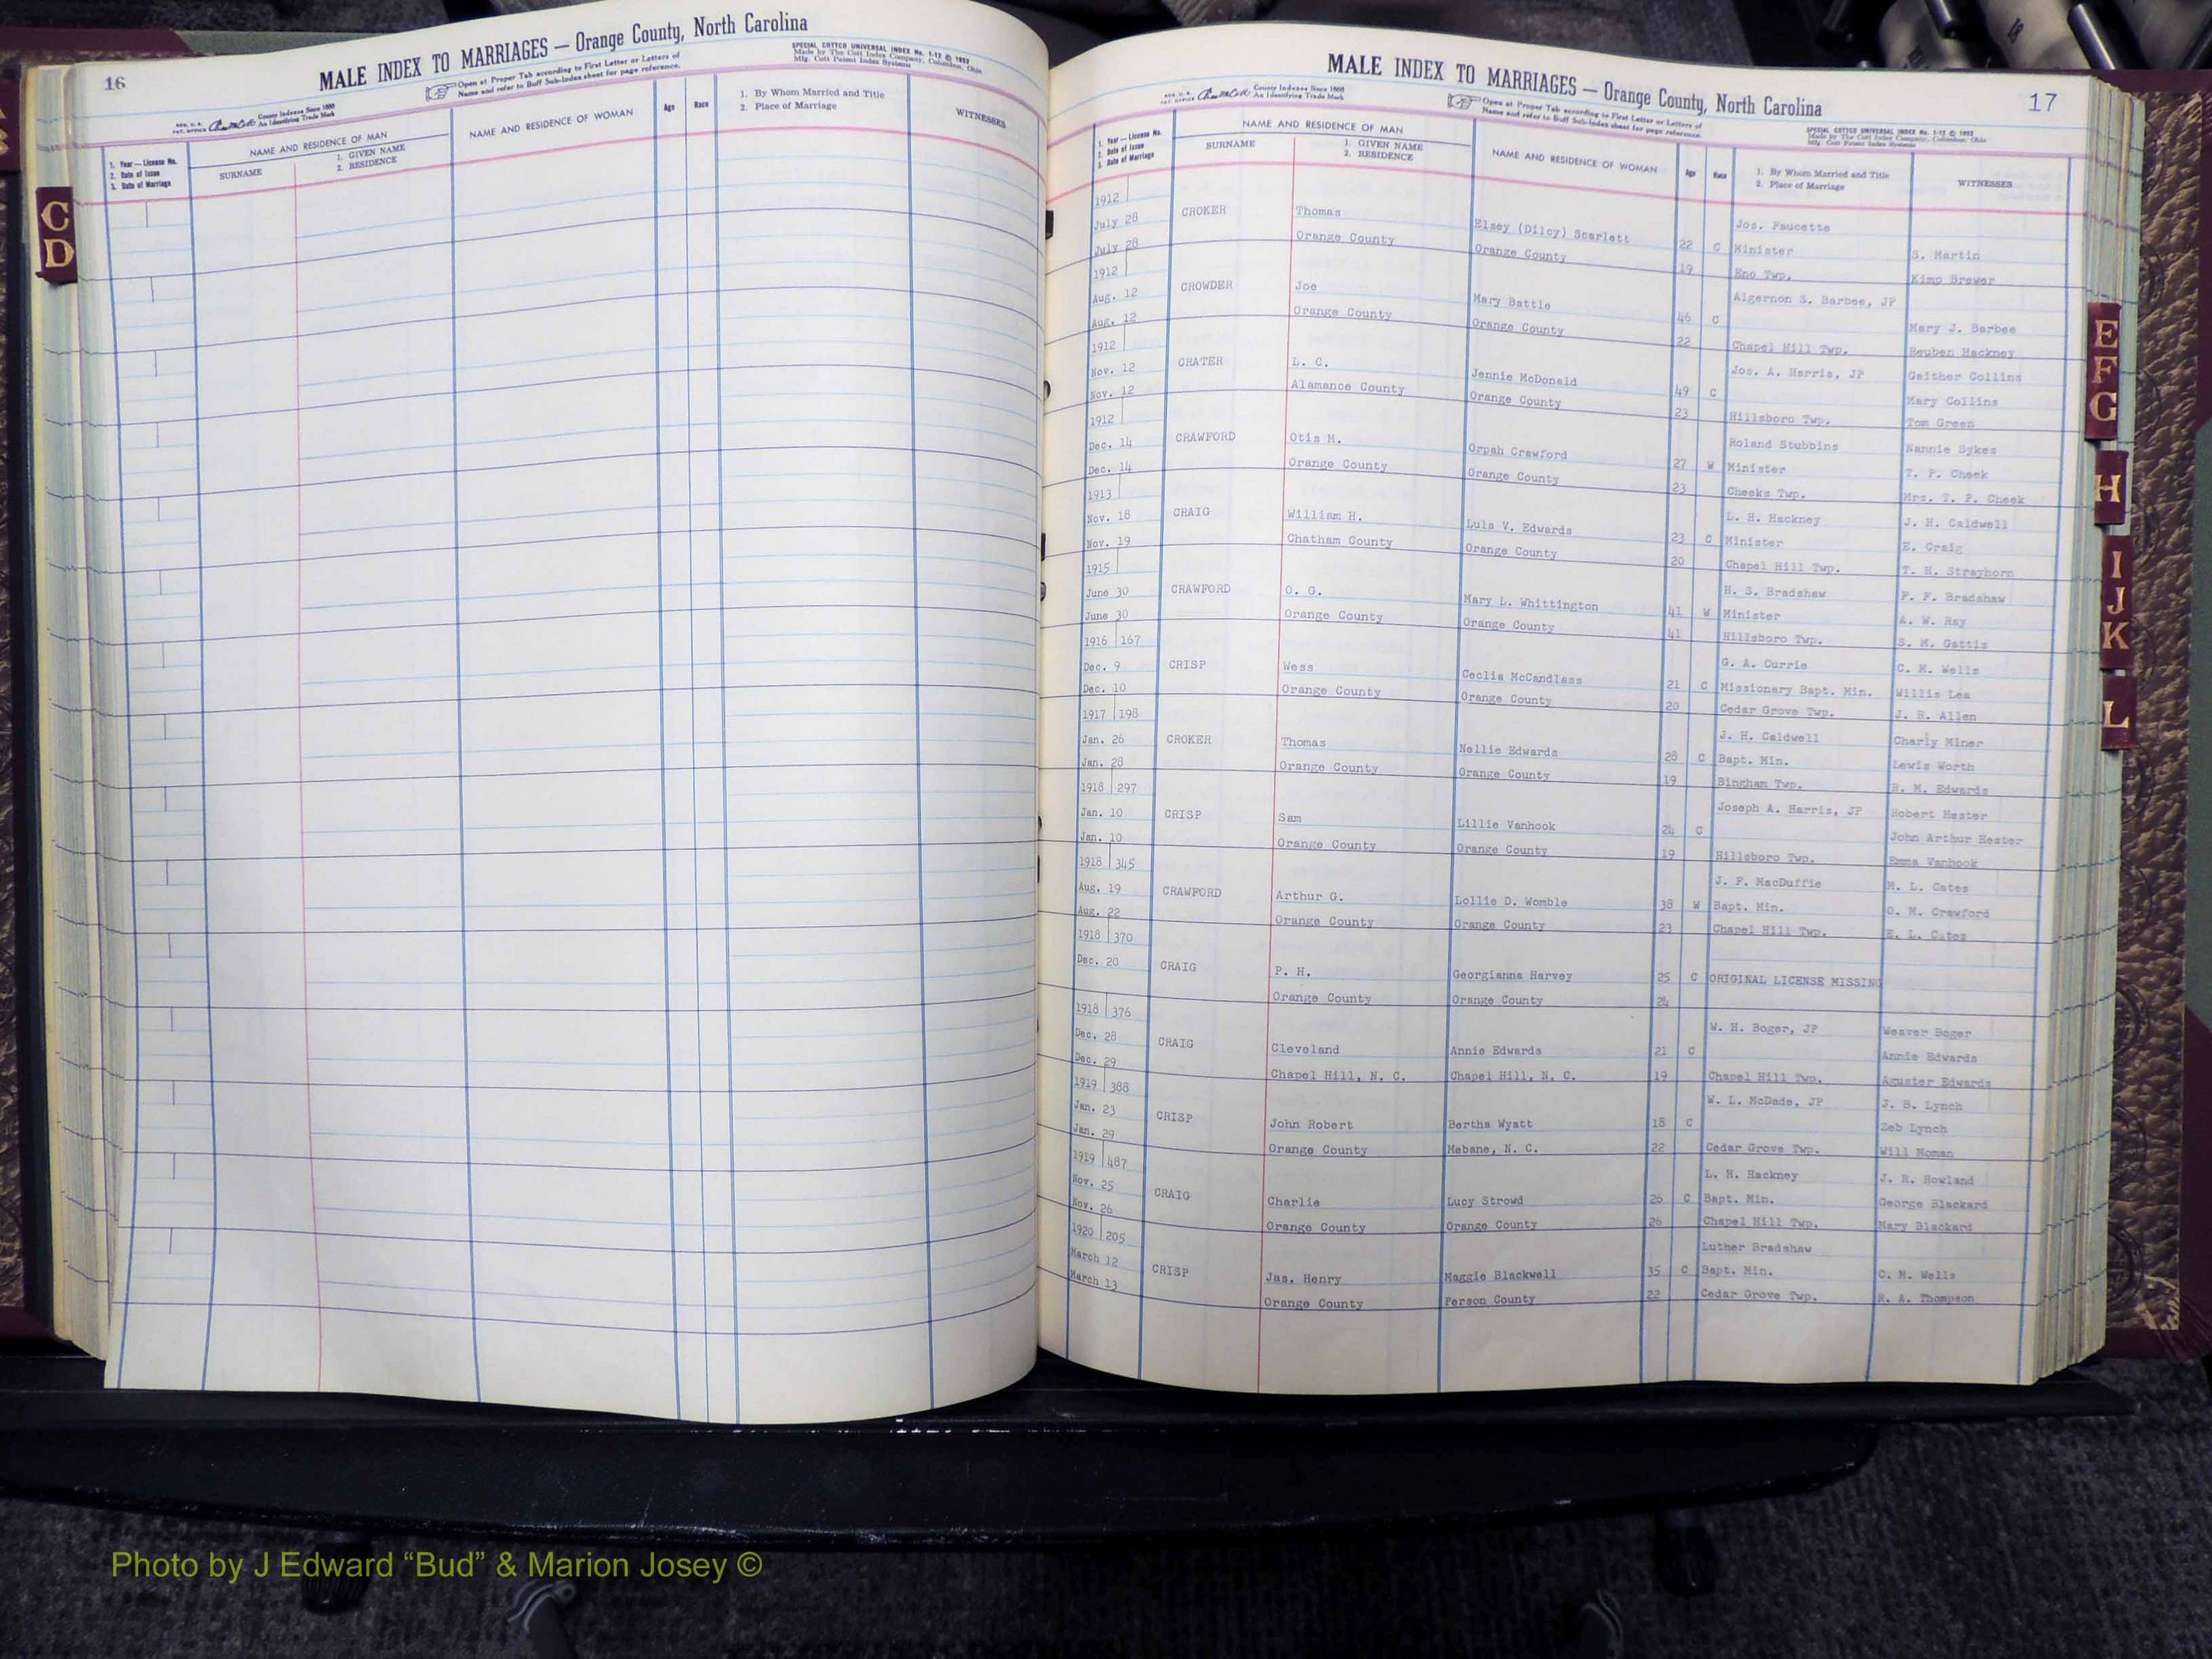 16
MALE INDEX TO MARRIAGES — Orange County, North Carolina
Open at Proper Tab according to First Letter or Letters of
Name and refer to Buff Sub-Index sheet for page reference.
SPECIAL COTTCO UNIVERSAL INDEX No. 1-12 © 1952
Made by The Cott Index Company, Columbus, Ohio
Mfg. Cott Patent Index Systems
County Indexes Since 1888
An Identifying Trade Mark
1. Year — License No.
2. Date of Issue
3. Date of Marriage
NAME AND RESIDENCE OF MAN
SURNAME
1. GIVEN NAME
2. RESIDENCE
NAME AND RESIDENCE OF WOMAN
Age
Race
1. By Whom Married and Title
2. Place of Marriage
WITNESSES
C
D
MALE INDEX TO MARRIAGES — Orange County, North Carolina
17
County Indexes Since 1888
An Identifying Trade Mark
Open at Proper Tab according to First Letter or Letters of
Name and refer to Buff Sub-Index sheet for page reference.
SPECIAL COTTCO UNIVERSAL INDEX No. 1-12 © 1952
Made by The Cott Index Company, Columbus, Ohio
Mfg. Cott Patent Index Systems
1. Year — License No.
2. Date of Issue
3. Date of Marriage
NAME AND RESIDENCE OF MAN
SURNAME
1. GIVEN NAME
2. RESIDENCE
NAME AND RESIDENCE OF WOMAN
Age
Race
1. By Whom Married and Title
2. Place of Marriage
WITNESSES
1912 Jos. Faucette
July 28 CROKER Thomas Elsey (Dilcy) Scarlett 22 C Minister S. Martin
July 28 Orange County Orange County 19 Eno Twp. Kimp Brewer
1912 Algernon S. Barbee, JP
Aug. 12 CROWDER Joe Mary Battle 46 C Mary J. Barbee
Aug. 12 Orange County Orange County 22 Chapel Hill Twp. Reuben Hackney
1912 Jos. A. Harris, JP Geither Collins
Nov. 12 CRATER L. C. Jennie McDonald 49 C Mary Collins
Nov. 12 Alamance County Orange County 23 Hillsboro Twp. Tom Green
1912 Roland Stubbins Nannie Sykes
Dec. 14 CRAWFORD Otis M. Orpah Crawford 27 W Minister T. P. Cheek
Dec. 14 Orange County Orange County 23 Cheeks Twp. Mrs. T. P. Cheek
1913 L. H. Hackney J. H. Caldwell
Nov. 18 CRAIG William H. Lula V. Edwards 23 C Minister E. Craig
Nov. 19 Chatham County Orange County 20 Chapel Hill Twp. T. H. Strayhorn
1915 H. S. Bradshaw F. F. Bradshaw
June 30 CRAWFORD O. G. Mary L. Whittington 41 W Minister A. W. Ray
June 30 Orange County Orange County 41 Hillsboro Twp. S. M. Gattis
1916 167 G. A. Currie C. M. Wells
Dec. 9 CRISP Wess Ceclia McCandless 21 C Missionary Bapt. Min. Willis Lea
Dec. 10 Orange County Orange County 20 Cedar Grove Twp. J. R. Allen
1917 198 J. H. Caldwell Charly Miner
Jan. 26 CROKER Thomas Nellie Edwards 28 C Bapt. Min. Lewis Worth
Jan. 28 Orange County Orange County 19 Bingham Twp. R. M. Edwards
1918 297 Joseph A. Harris, JP Robert Hester
Jan. 10 CRISP Sam Lillie Vanhook 24 C John Arthur Hester
Jan. 10 Orange County Orange County 19 Hillsboro Twp. Emma Vanhook
1918 345 J. F. MacDuffie M. L. Cates
Aug. 19 CRAWFORD Arthur G. Lollie D. Womble 38 W Bapt. Min. O. M. Crawford
Aug. 22 Orange County Orange County 23 Chapel Hill Twp. E. L. Cates
1918 370
Dec. 20 CRAIG P. H. Georgianna Harvey 25 C ORIGINAL LICENSE MISSING
Orange County Orange County 24
1918 376 W. H. Boger, JP Weaver Boger
Dec. 28 CRAIG Cleveland Annie Edwards 21 C Annie Edwards
Dec. 29 Chapel Hill, N. C. Chapel Hill, N. C. 19 Chapel Hill Twp. Aguster Edwards
1919 388 W. L. McDade, JP J. B. Lynch
Jan. 23 CRISP John Robert Bertha Wyatt 18 C Zeb Lynch
Jan. 29 Orange County Mebane, N. C. 22 Cedar Grove Twp. Will Moman
1919 487 L. H. Hackney J. R. Rowland
Nov. 25 CRAIG Charlie Lucy Strowd 26 C Bapt. Min. George Blackard
Nov. 26 Orange County Orange County 26 Chapel Hill Twp. Mary Blackard
1920 205 Luther Bradshaw
March 12 CRISP Jas. Henry Maggie Blackwell 35 C Bapt. Min. C. M. Wells
March 13 Orange County Person County 22 Cedar Grove Twp. R. A. Thompson
E
F
G
H
I
J
K
L
Photo by J Edward “Bud” & Marion Josey ©